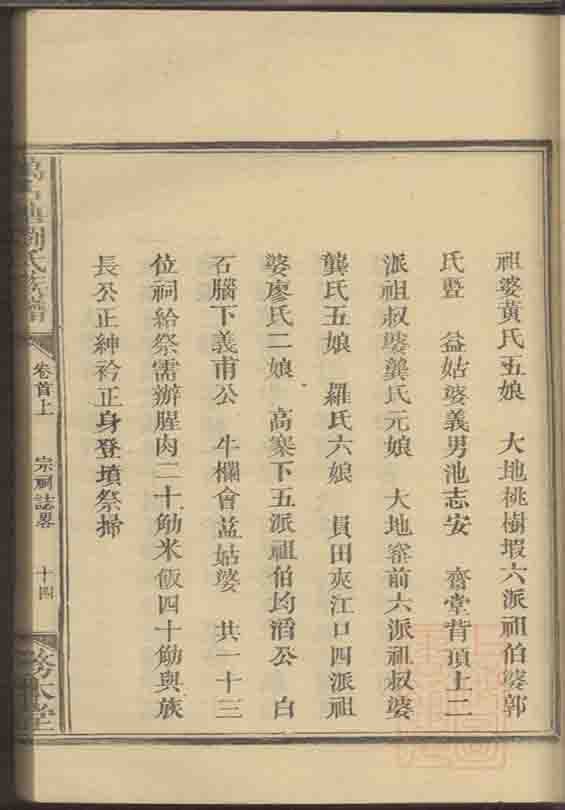 祖婆黃氏五娘　大地桃樹壢六派祖伯婆郭
氏暨　益姑婆義男池志安　齋堂背頂上二
派祖叔婆龔氏元娘　大地窰前六派祖叔婆
龔氏五娘　羅氏六娘　員田夾江口四派祖
婆廖氏二娘　高寨下五派祖伯均滔公　白
石腦下義甫公　牛欄會益姑婆　共一十三
位祠給祭需辦腥肉二十觔米飯四十觔與族
長公正紳衿正身登墳祭掃
劉氏族譜
卷首上
宗祠誌畧
十四
務本堂